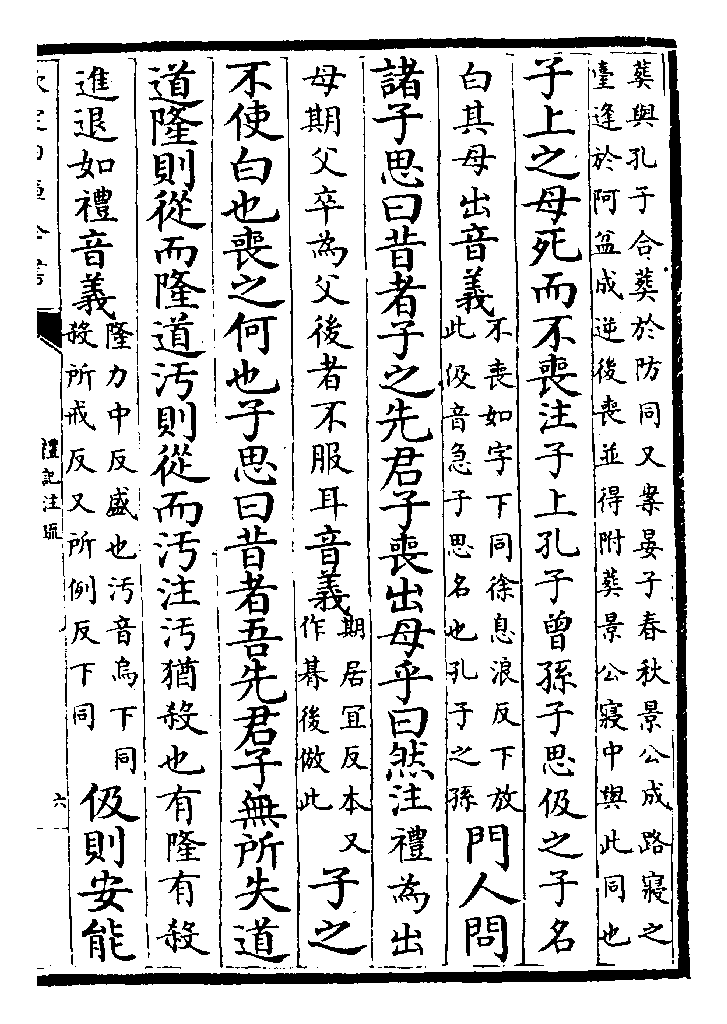 葬與孔子合葬於防同又案晏子春秋景公成路寢之
臺逢於阿盆成逆後喪並得附葬景公寢中與此同也
子上之母死而不喪注子上孔子曾孫子思伋之子名
白其母出音義
不喪如字下同徐息浪反下放
此伋音急子思名也孔子之孫
門人問
諸子思曰昔者子之先君子喪出母乎曰然注禮為出
母期父卒為父後者不服耳音義
期居冝反本又
作朞後倣此
子之
不使白也喪之何也子思曰昔者吾先君子無所失道
道隆則從而隆道汚則從而汚注汚猶殺也有隆有殺
進退如禮音義
隆力中反盛也汚音烏下同
殺所戒反又所例反下同
伋則安能
禮記注疏
六